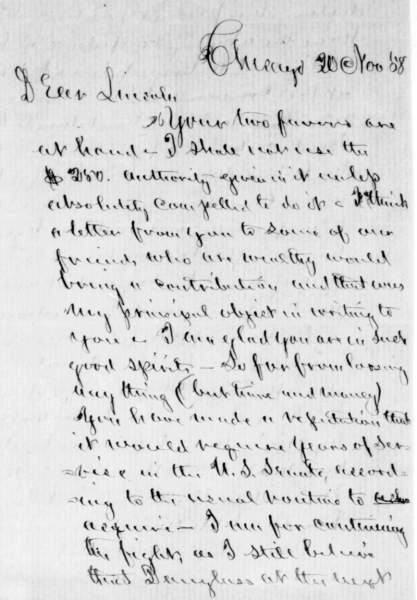 Chicago 20 Nov 58
Dear Lincoln,
Your two favors are
at hand - I shall not use the
$250. authority given in it unless
absolutely compelled to do it - I think
a letter from you to some of our
friends who are wealthy would
bring a contribution and that was
my principal object in writing to
you - I am glad you are in such
good spirits - So far from loosing
any thing (but time and money)
you have made a reputation that
it would require years of ser-
-vise in the U. S. Senate, accord-
-ing to the usual routine to
acquire - I am for continuing
the fight, as I still believe
that Douglass at the next